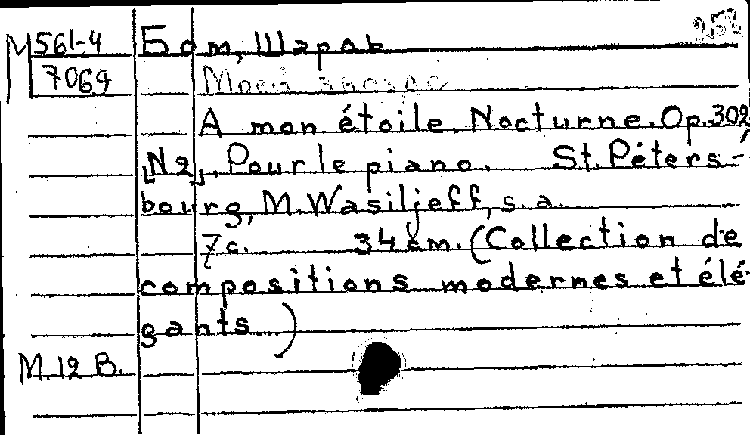 М 561-4 Бом, Шарль
7069 Моей звезде
A mon étoile. Nocturne. Op. 302,
[N 2]. Pour le piano. St. Peters-
bourg, M. Wasiljeff, s. a.
7 c. 34 см. (Collection de
compositions modernes et élé-
gants)
М. 12 В.